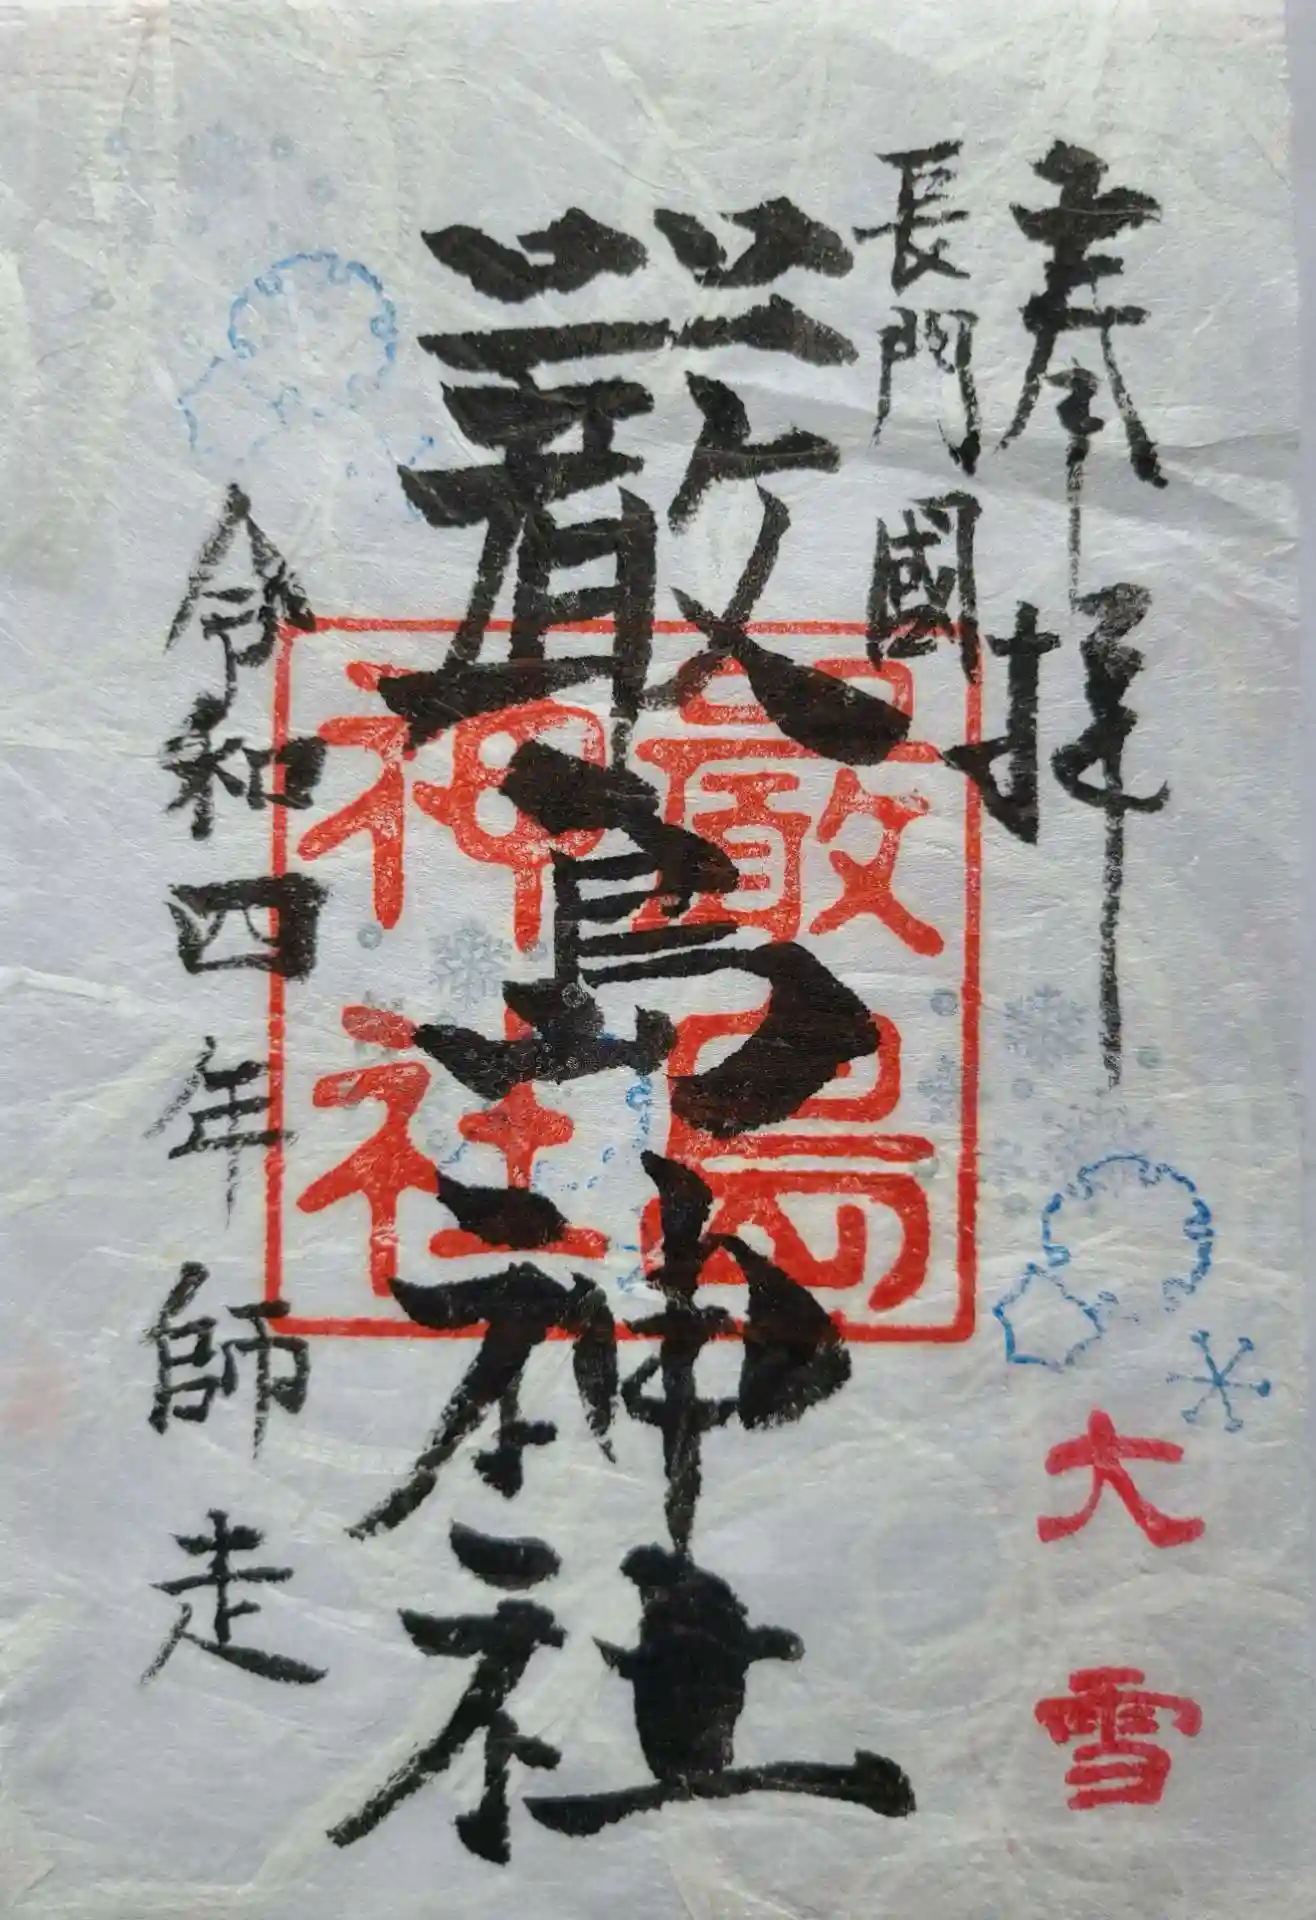 奉拝
長門國
嚴島神社
嚴島
神社
令和四年師走
大雪